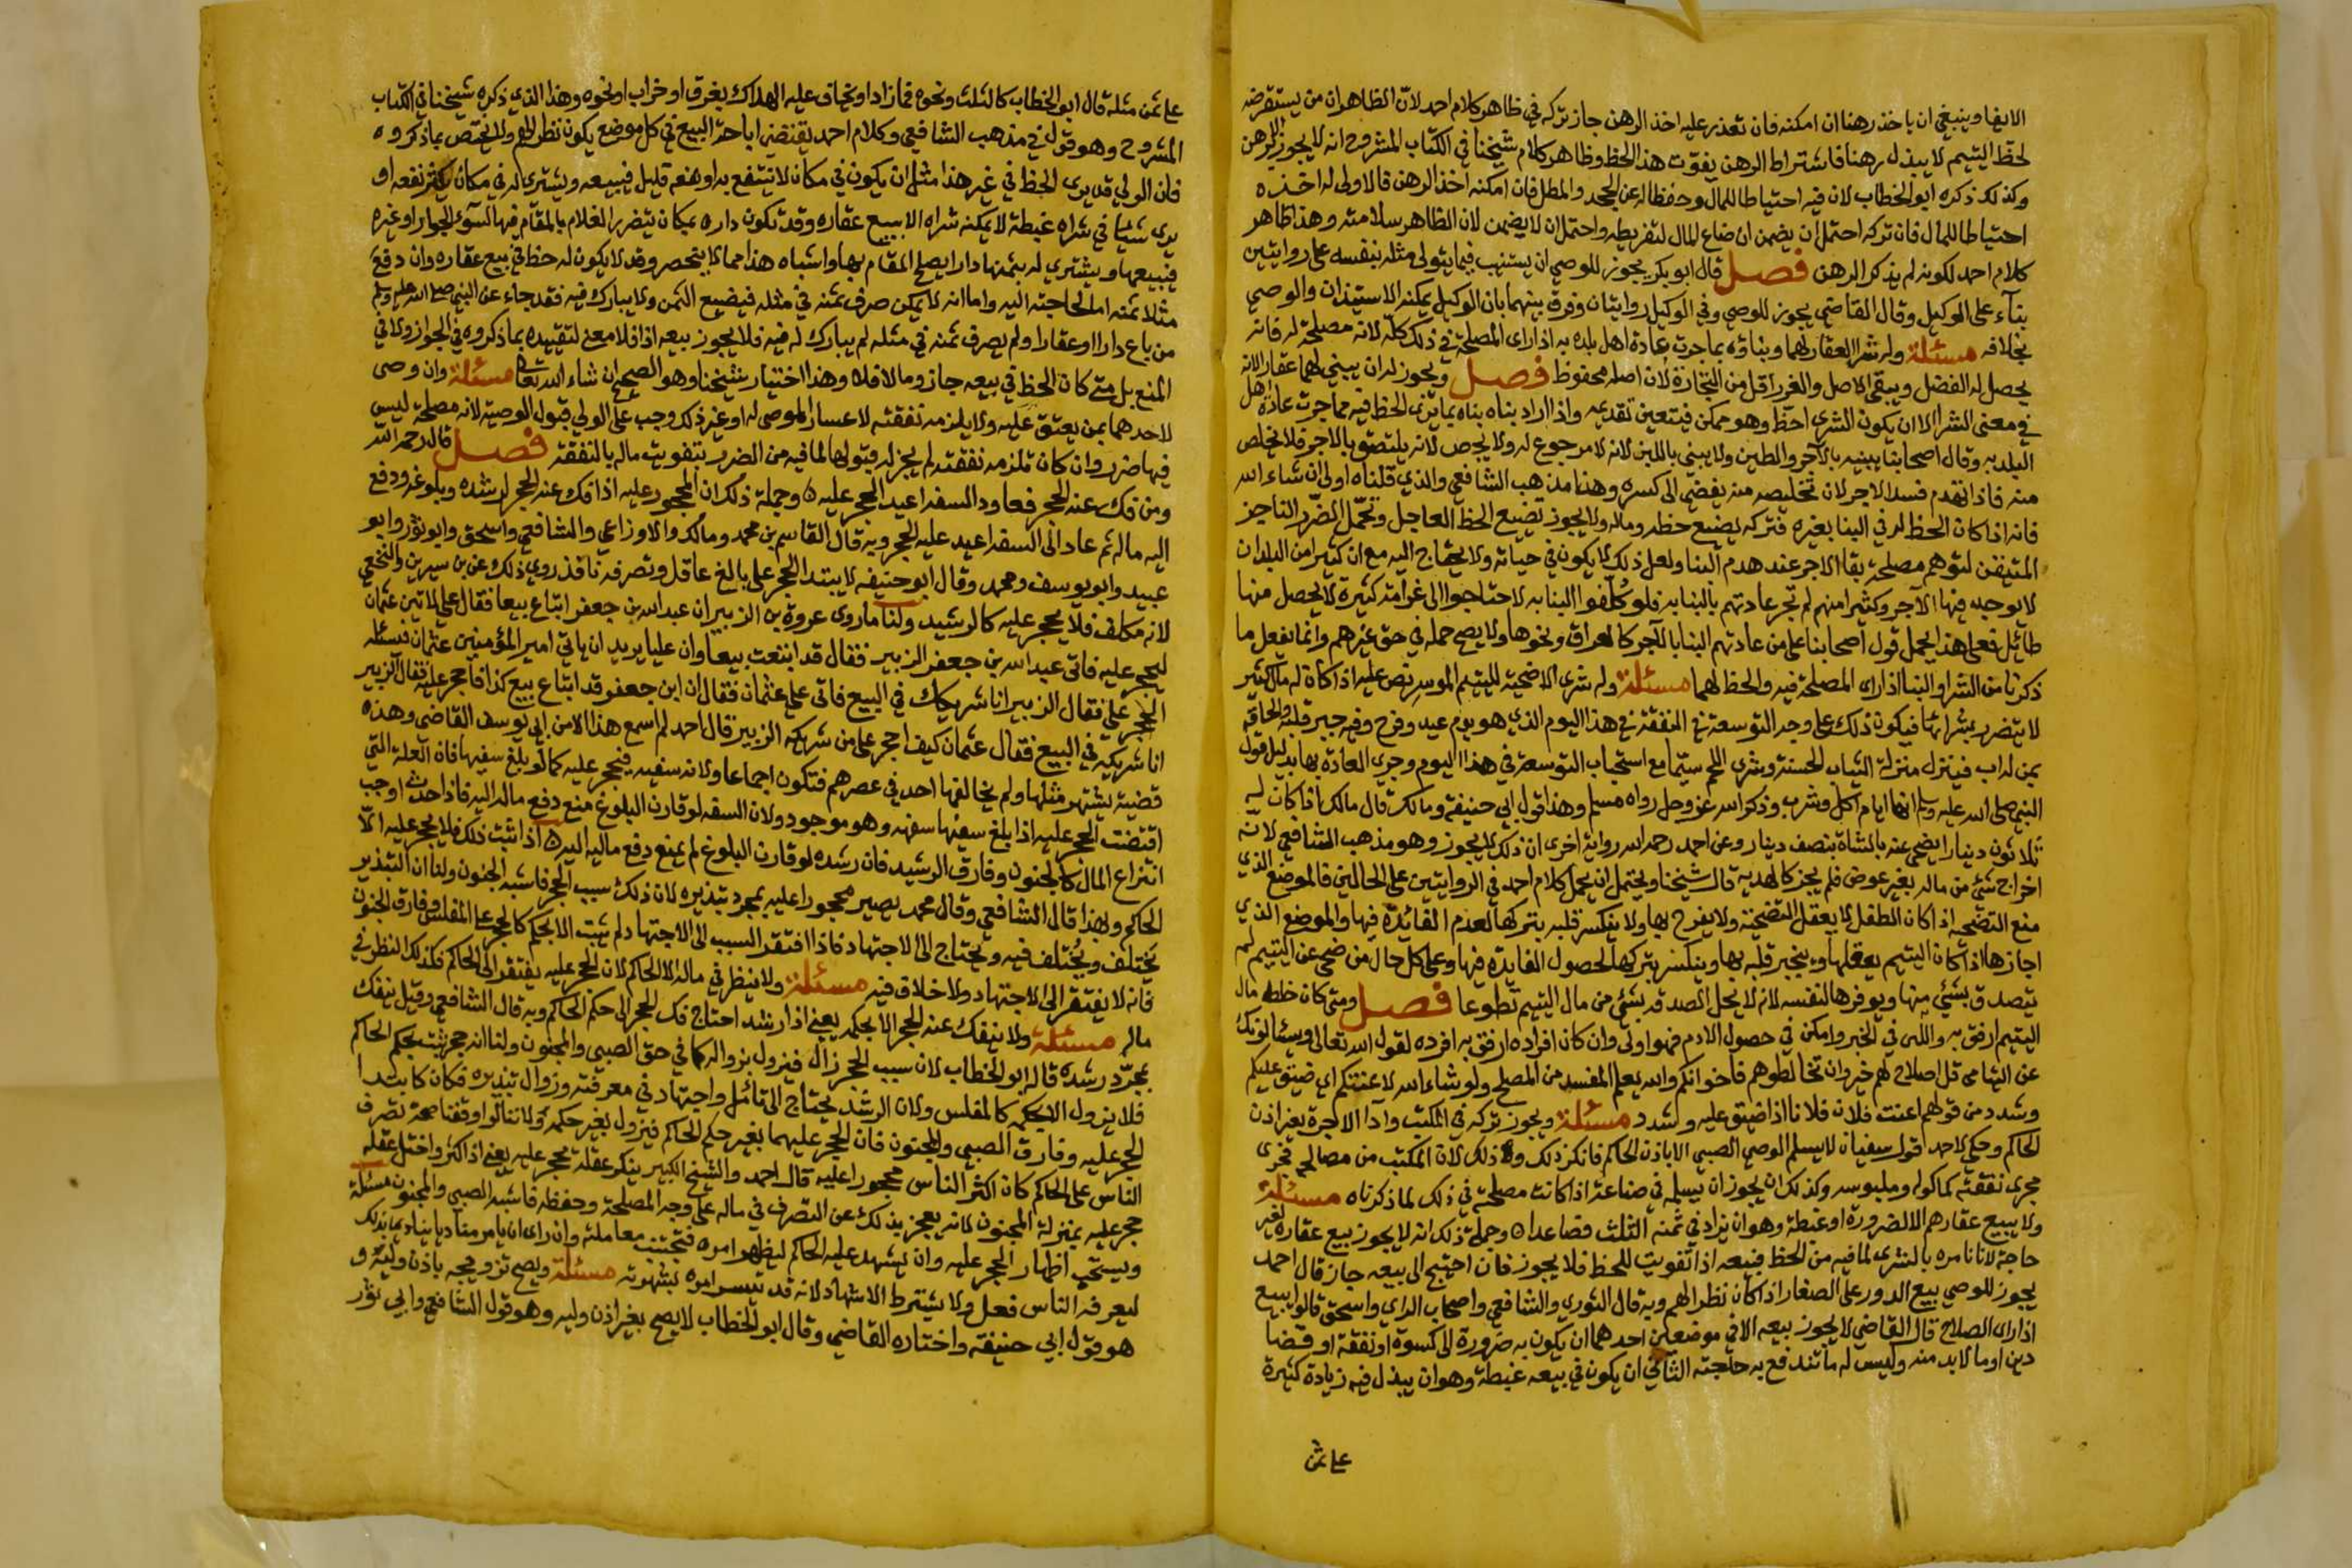 الايفا وينبغي ان ياخذ رهنا ان امكنه فان تعذر عليه اخذ الرهن جاز تركه في ظاهر كلام احمد لان الظاهر ان من يستقرضه
لحظ اليتيم لا يبذل رهنا فاشتراط الرهن يفوت هذا الحظ وظاهر كلام شيخنا في الكتاب المشروح انه لا يجوز الا برهن
وكذلك ذكره ابو الخطاب لان فيه احتياطا للمال وحفظا له عن الجحد والمطل فان امكنه اخذ الرهن فالاولى له اخذه
احتياطا للمال فان تركه احتمل ان يضمن ان ضاع المال لتفريطه واحتمل ان لا يضمن لان الظاهر سلامته وهذا ظاهر
كلام احمد لكونه لم يذكر الرهن فصل قال ابو بكر يجوز للوصي ان يستنيب فيما يتولى مثله بنفسه على روايتين
بنآء على الوكيل وقال القاضي يجوز للوصي وفي الوكيل روايتان وفرق بينهما بان الوكيل يمكنه الاستيذان والوصي
بخلافه مسئلة وله شرا العقار لهما وبناؤه بما جرت عادة اهل بلده به اذا راى المصلحة في ذلك كله لانه مصلحة له فانه
يحصل له الفضل ويبقى الاصل والغرر اقل من التجارة لان اصله محفوظ فصل ويجوز له ان يبني لهما عقارا لانه
في معنى الشرا الا ان يكون الشرى احظ وهو ممكن فيتعين تقديمه واذا اراد بناه بناه بما يرى الحظ فيه مما جرت عادة اهل
البلد به وقال اصحابنا يبنيه بالآجر والطين ولا يبنى باللبن لانه لا مرجوع له ولا يجص لانه يلتصق بالاجر فلا يخلص
منه فاذا تهدم فسد الاجر لان تخليصه منه يفضي الى كسره وهذا مذهب الشافعي والذي قلناه اولى ان شاء الله
فانه اذا كان الحظ له في البنا بغيره فتركه يضيع حظه وماله ولا يجوز تضييع الحظ العاجل وتحمل الضرر الناجز
المتيقن لتوهم مصلحة بقا الاجر عند هدم البنا ولعل ذلك لا يكون في حياته ولا يحتاج اليه مع ان كثيرا من البلدان
لا يوجد فيها الآجر وكثيرا منهم لم تجر عادتهم بالبنا به فلو كلفوا البنا به لاحتاجوا الى غرامة كثيرة لا يحصل منها
طائل فعلى هذا يحمل قول اصحابنا على من عادتهم البنا بالآجر كالعراق ونحوها ولا يصح حمله في حق غيرهم وانما يفعل ما
ذكرنا من الشرا والبنا اذا راى المصلحة فيه والحظ لهما مسئلة وله شرى الاضحية لليتيم الموسر نص عليه اذا كان له مال كثير
لا يتضرر بشرائها فيكون ذلك على وجه التوسعة في النفقة في هذا اليوم الذي هو يوم عيد وفرح وفيه جبر قلبه والحاقه
بمن له اب فينزل منزلة الثياب الحسنة وشرى اللحم سيما مع استحباب التوسعة في هذا اليوم وجري العادة بها بدليل قول
النبي صلى الله عليه وسلم انها ايام اكل وشرب وذكر الله عز وجل رواه مسلم وهذا قول ابي حنيفة ومالك قال مالك اذا كان له
ثلاثون دينارا يضحى عنه بالشاة بنصف دينار وعن احمد رحمه الله رواية اخرى ان ذلك لا يجوز وهو مذهب الشافعي لانه
اخراج شئ من ماله بغير عوض فلم يجز كالهدية قال شيخنا ويحتمل ان يحمل كلام احمد في الروايتين على الحالين فالموضع الذي
منع التضحية اذا كان الطفل لا يعقل التضحية ولا يفرح بها ولا ينكسر قلبه بتركها لعدم الفائدة فيها والموضع الذي
اجازها اذا كان اليتيم يعقلها وينجبر قلبه بها وينكسر بتركها لحصول الفايدة فيها وعلى كل حال من ضحى عن اليتيم لم
يتصدق بشئ منها ويوفرها لنفسه لانه لا يحل الصدقة بشئ من مال اليتيم تطوعا فصل ومتى كان خلط مال
اليتيم ارفق به والين في الخبز وامكن في حصول الادم فهو اولى وان كان افراده ارفق به افرده لقول الله تعالى ويسئلونك
عن اليتامى قل اصلاح لهم خير وان تخالطوهم فاخوانكم والله يعلم المفسد من المصلح ولو شاء الله لاعنتكم اي ضيق عليكم
وشدد من قولهم اعنت فلان فلانا اذا ضيق عليه وشدد مسئلة ويجوز تركه في المكتب وادا الاجرة بغير اذن
الحاكم وحكي لاحمد قول سفيان لا يسلم الوصي الصبي الا باذن الحاكم فانكر ذلك وذلك لان المكتب من مصالحه فجرى
مجرى نفقته كماكوله وملبوسه وكذلك ان يجوز ان يسلمه في صناعة اذا كانت مصلحة في ذلك لما ذكرناه مسئلة
ولا يبيع عقارهم الا لضرورة او غبطة وهو ان يزاد في ثمنه الثلث فصاعدا وجملة ذلك انه لا يجوز بيع عقاره لغير
حاجة لاننا نامره بالشرى لما فيه من الحظ فبيعه اذا تفويت للحظ فلا يجوز فان احتيج الى بيعه جاز قال احمد
يجوز للوصي بيع الدور على الصغار اذا كان نظرا لهم وبه قال الثوري والشافعي واصحاب الراي واسحق قالوا يبيع
اذا راى الصلاح قال القاضي لا يجوز بيعه الا في موضعين احدهما ان يكون به ضرورة الى كسوة او نفقة او قضا
دين او ما لا بد منه وليس له ما تندفع به حاجته الثاني ان يكون في بيعه غبطة وهو ان يبذل فيه زيادة كثيرة
على ثمن
على ثمن مثله قال ابو الخطاب كالثلث ونحوه فما زاد او يخاف عليه الهلاك بغرق او خراب او نحوه وهذا الذي ذكره شيخنا في الكتاب
المشروح وهو قول في مذهب الشافعي وكلام احمد يقتضي اباحة البيع في كل موضع يكون نظرا لهم ولا يختص بما ذكروه
فان الولي قد يرى الحظ في غير هذا مثل ان يكون في مكان لا ينتفع به او نفعه قليل فيبيعه ويشتري له في مكان يكثر نفعه او
يرى شيئا في شراه غبطة لا يمكنه شراه الا ببيع عقاره وقد تكون داره بمكان يتضرر الغلام بالمقام فيها لسوء الجوار او غيره
فيبيعها ويشتري له بثمنها دارا يصلح المقام بها واشباه هذا مما لا ينحصر وقد لا يكون له حظ في بيع عقاره وان دفع
مثلا ثمنه اما لحاجته اليه واما انه لا يمكن صرف ثمنه في مثله فيضيع الثمن ولا يبارك فيه فقد جاء عن النبي صلى الله عليه وسلم
من باع دارا او عقارا ولم يصرف ثمنه في مثله لم يبارك له فيه فلا يجوز بيعه اذا فلا معنى لتقييده بما ذكروه في الجواز ولا في
المنع بل متى كان الحظ في بيعه جاز وما لا فلا وهذا اختيار شيخنا وهو الصحيح ان شاء الله تعالى مسئلة وان وصى
لاحدهما بمن يعتق عليه ولا يلزمه نفقته لاعسار الموصى له او غير ذلك وجب على الولي قبول الوصية لانه مصلحة ليس
فيها ضرر وان كان تلزمه نفقته لم يجز له قبولها لما فيه من الضرر بتفويت ماله بالنفقة فصل قال رحمه الله
ومن فك عنه الحجر فعاود السفه اعيد الحجر عليه وجملة ذلك ان المحجور عليه اذا فك عنه الحجر لرشده وبلوغه ودفع
اليه ماله ثم عاد الى السفه اعيد عليه الحجر وبه قال القاسم بن محمد ومالك والاوزاعي والشافعي واسحق وابو ثور وابو
عبيد وابو يوسف ومحمد وقال ابو حنيفه لا يبتدا الحجر على بالغ عاقل وتصرفه نافذ روي ذلك عن بن سيرين والنخعي
لانه مكلف فلا يحجر عليه كالرشيد ولنا ما روى عروة بن الزبير ان عبد الله بن جعفر ابتاع بيعا فقال علي لاتين عثمان
ليحجر عليه فاتى عبد الله بن جعفر الزبير فقال قد ابتعت بيعا وان عليا يريد ان ياتي امير المؤمنين عثمان فيسئله
الحجر علي فقال الزبير انا شريكك في البيع فاتى علي عثمان فقال ان ابن جعفر قد ابتاع بيع كذا فاحجر عليه فقال الزبير
انا شريكه في البيع فقال عثمان كيف احجر على من شريكه الزبير قال احمد لم اسمع هذا الا من ابي يوسف القاضي وهذه
قضية يشتهر مثلها ولم يخالفها احد في عصرهم فتكون اجماعا ولانه سفيه فيحجر عليه كما لو بلغ سفيها فان العلة التي
اقتضت الحجر عليه اذا بلغ سفيها سفهه وهو موجود ولان السفه لو قارن البلوغ منع دفع ماله اليه فاذا حدث اوجب
انتزاع المال كالجنون وفارق الرشيد فان رشده لو قارن البلوغ لم يمنع دفع ماليه اليه اذا ثبت ذلك فلا يحجر عليه الا
الحاكم وبهذا قال الشافعي وقال محمد يصير محجورا عليه بمجرد تبذيره لان ذلك سبب الحجر فاشبه الجنون ولنا ان التبذير
يختلف ويختلف فيه ويحتاج الى الاجتهاد فاذا افتقر السبب الى الاجتهاد لم يثبت الا بحكم كالحجر على المفلس وفارق الجنون
فانه لا يفتقر الى الاجتهاد ولا خلاف فيه مسئلة ولا ينظر في ماله الا الحاكم لان الحجر عليه يفتقر الى الحاكم فكذلك النظر في
ماله مسئلة ولا ينفك عنه الحجر الا بحكمه يعني اذا رشد احتاج فك الحجر الى حكم الحاكم وبه قال الشافعي وقيل ينفك
بمجرد رشده قاله ابو الخطاب لان سبب الحجر زال فيزول بزواله كما في حق الصبي والمجنون ولنا انه حجر ثبت بحكم الحاكم
فلا يزول الا بحكمه كالمفلس ولان الرشد يحتاج الى تامل واجتهاد في معرفته وزوال تبذيره فكان كابتدا
الحجر عليه وفارق الصبي والمجنون فان الحجر عليهما بغير حكم الحاكم فيزول بغير حكمه ولاننا لو اوقفنا صحة تصرف
الناس على الحاكم كان اكثر الناس محجورا عليه قال احمد والشيخ الكبير ينكر عقله يحجر عليه يعني اذا كبر واختل عقله
حجر عليه بمنزلة المجنون لانه يعجز بذلك عن التصرف في ماله على وجه المصلحة وحفظه فاشبه الصبي والمجنون مسئلة
ويستحب اظهار الحجر عليه وان يشهد عليه الحاكم ليظهر امره فتجتنب معاملته وان راى ان يامر مناديا ينادي بذلك
ليعرفه الناس فعل ولا يشترط الاشهاد لانه قد ينتشر امره بشهرته مسئلة ويصح تزويجه باذن وليه و
هو قول ابي حنيفة واختاره القاضي وقال ابو الخطاب لا يصح بغير اذن وليه وهو قول الشافعي وابي ثور